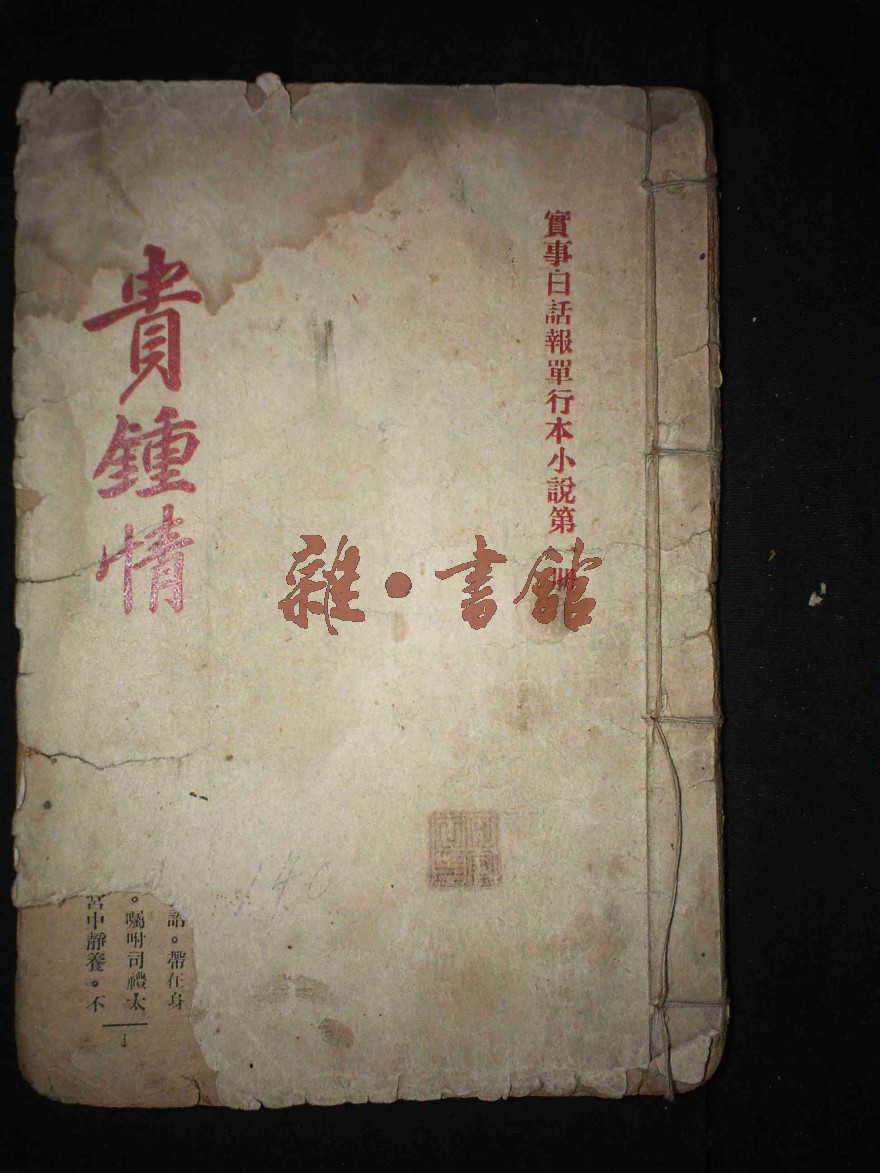 實事白話報單行本小說第一册
貴鍾情
雜·書館
140
話。帶在身
。囑咐司禮太
宮中靜養。不